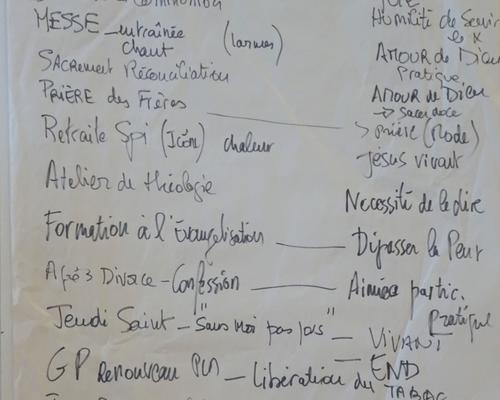 MESSE _ entraînée
chant (larmes)
SACRement Réconciliation
PRIÈRE des Frères
Retraite Spi (Icône) chaleur
Atelier de théologie
Formation à l'Évangélisation
Après Divorce - Confession
Jeudi Saint - "Sans moi pas
GP Renouveau - Libération du TABAC
Humilité de Servir
AMOUR de Dieu
Pratique
AMOUR de Dieu
→ Sacerdoce
> prière (Mode)
Jésus vivant
Necessité de le dire
Dépasser la Peur
partic.
Pratique
VIVANT
END